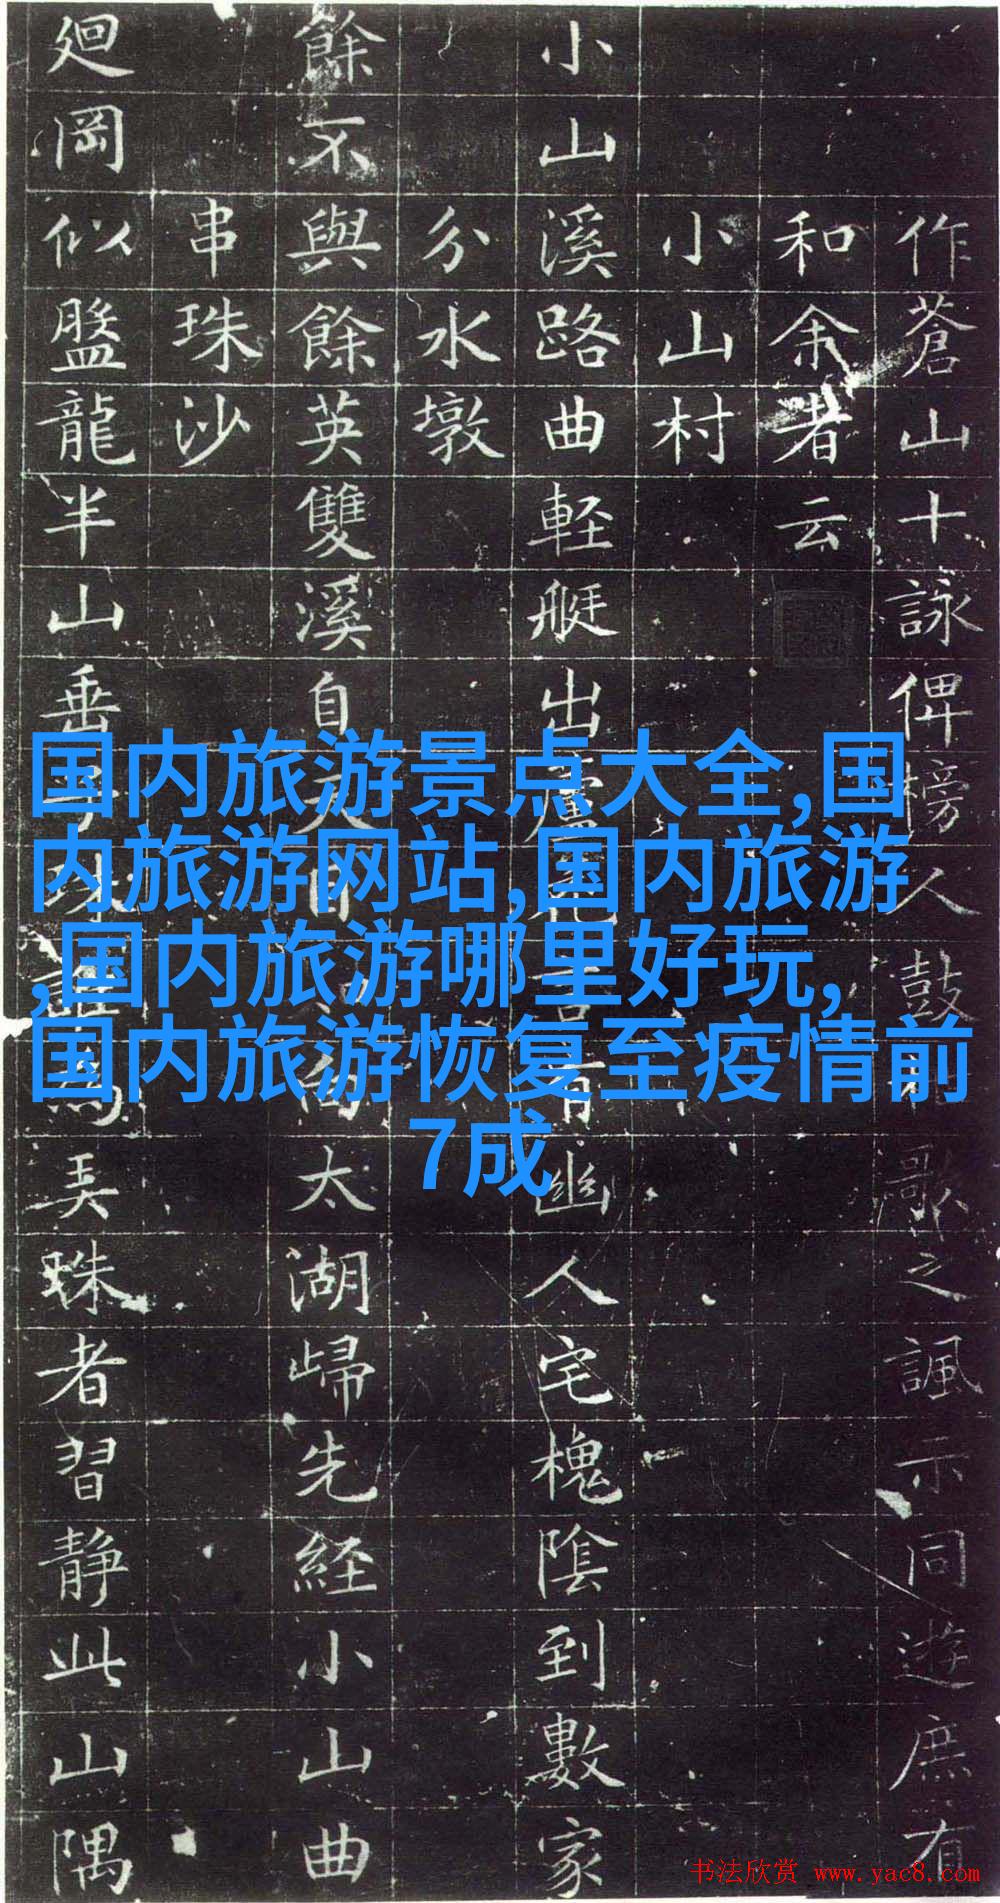 作蒼山十詠俾榜人鼓歌之諷示同遊庶有
和余者云
小山村
小山溪路曲軽艇出蘆花言有幽人宅槐陰到數家
分水墩
餘不與餘英雙溪自天目向太湖歸先経小山曲
串珠沙
廻岡似盤龍半山垂珠誰為弄珠者習静此山隅
国内旅游景点大全,国
内旅游网站,国内旅游
,国内旅游哪里好玩,
国内旅游恢复至疫情前
7成
书法欣赏 www.yac8.com